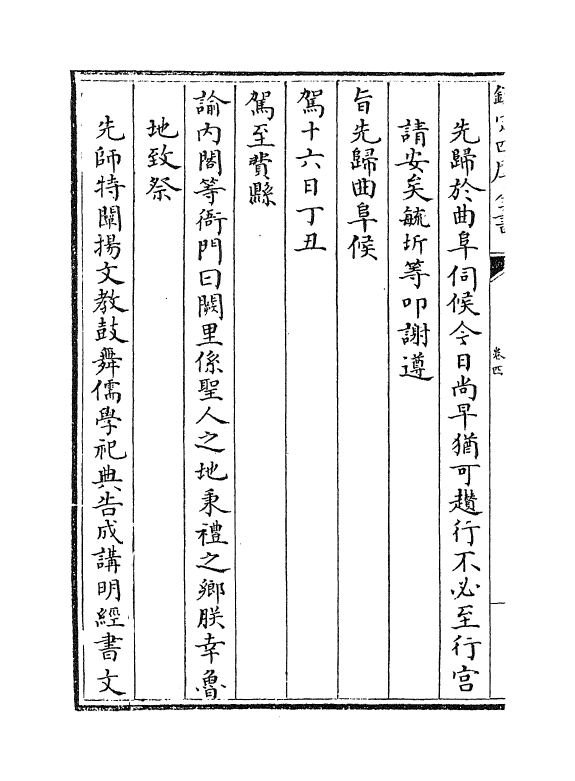 欽定四庫全書
卷四
先歸於曲阜伺候今日尚早猶可趲行不必至行宫
請安矣毓圻等叩謝遵
旨先歸曲阜候
駕十六日丁丑
駕至費縣
諭内閣等衙門曰闕里係聖人之地秉禮之鄉朕幸魯
地致祭
先師特闡揚文教鼓舞儒學祀典告成講明經書文